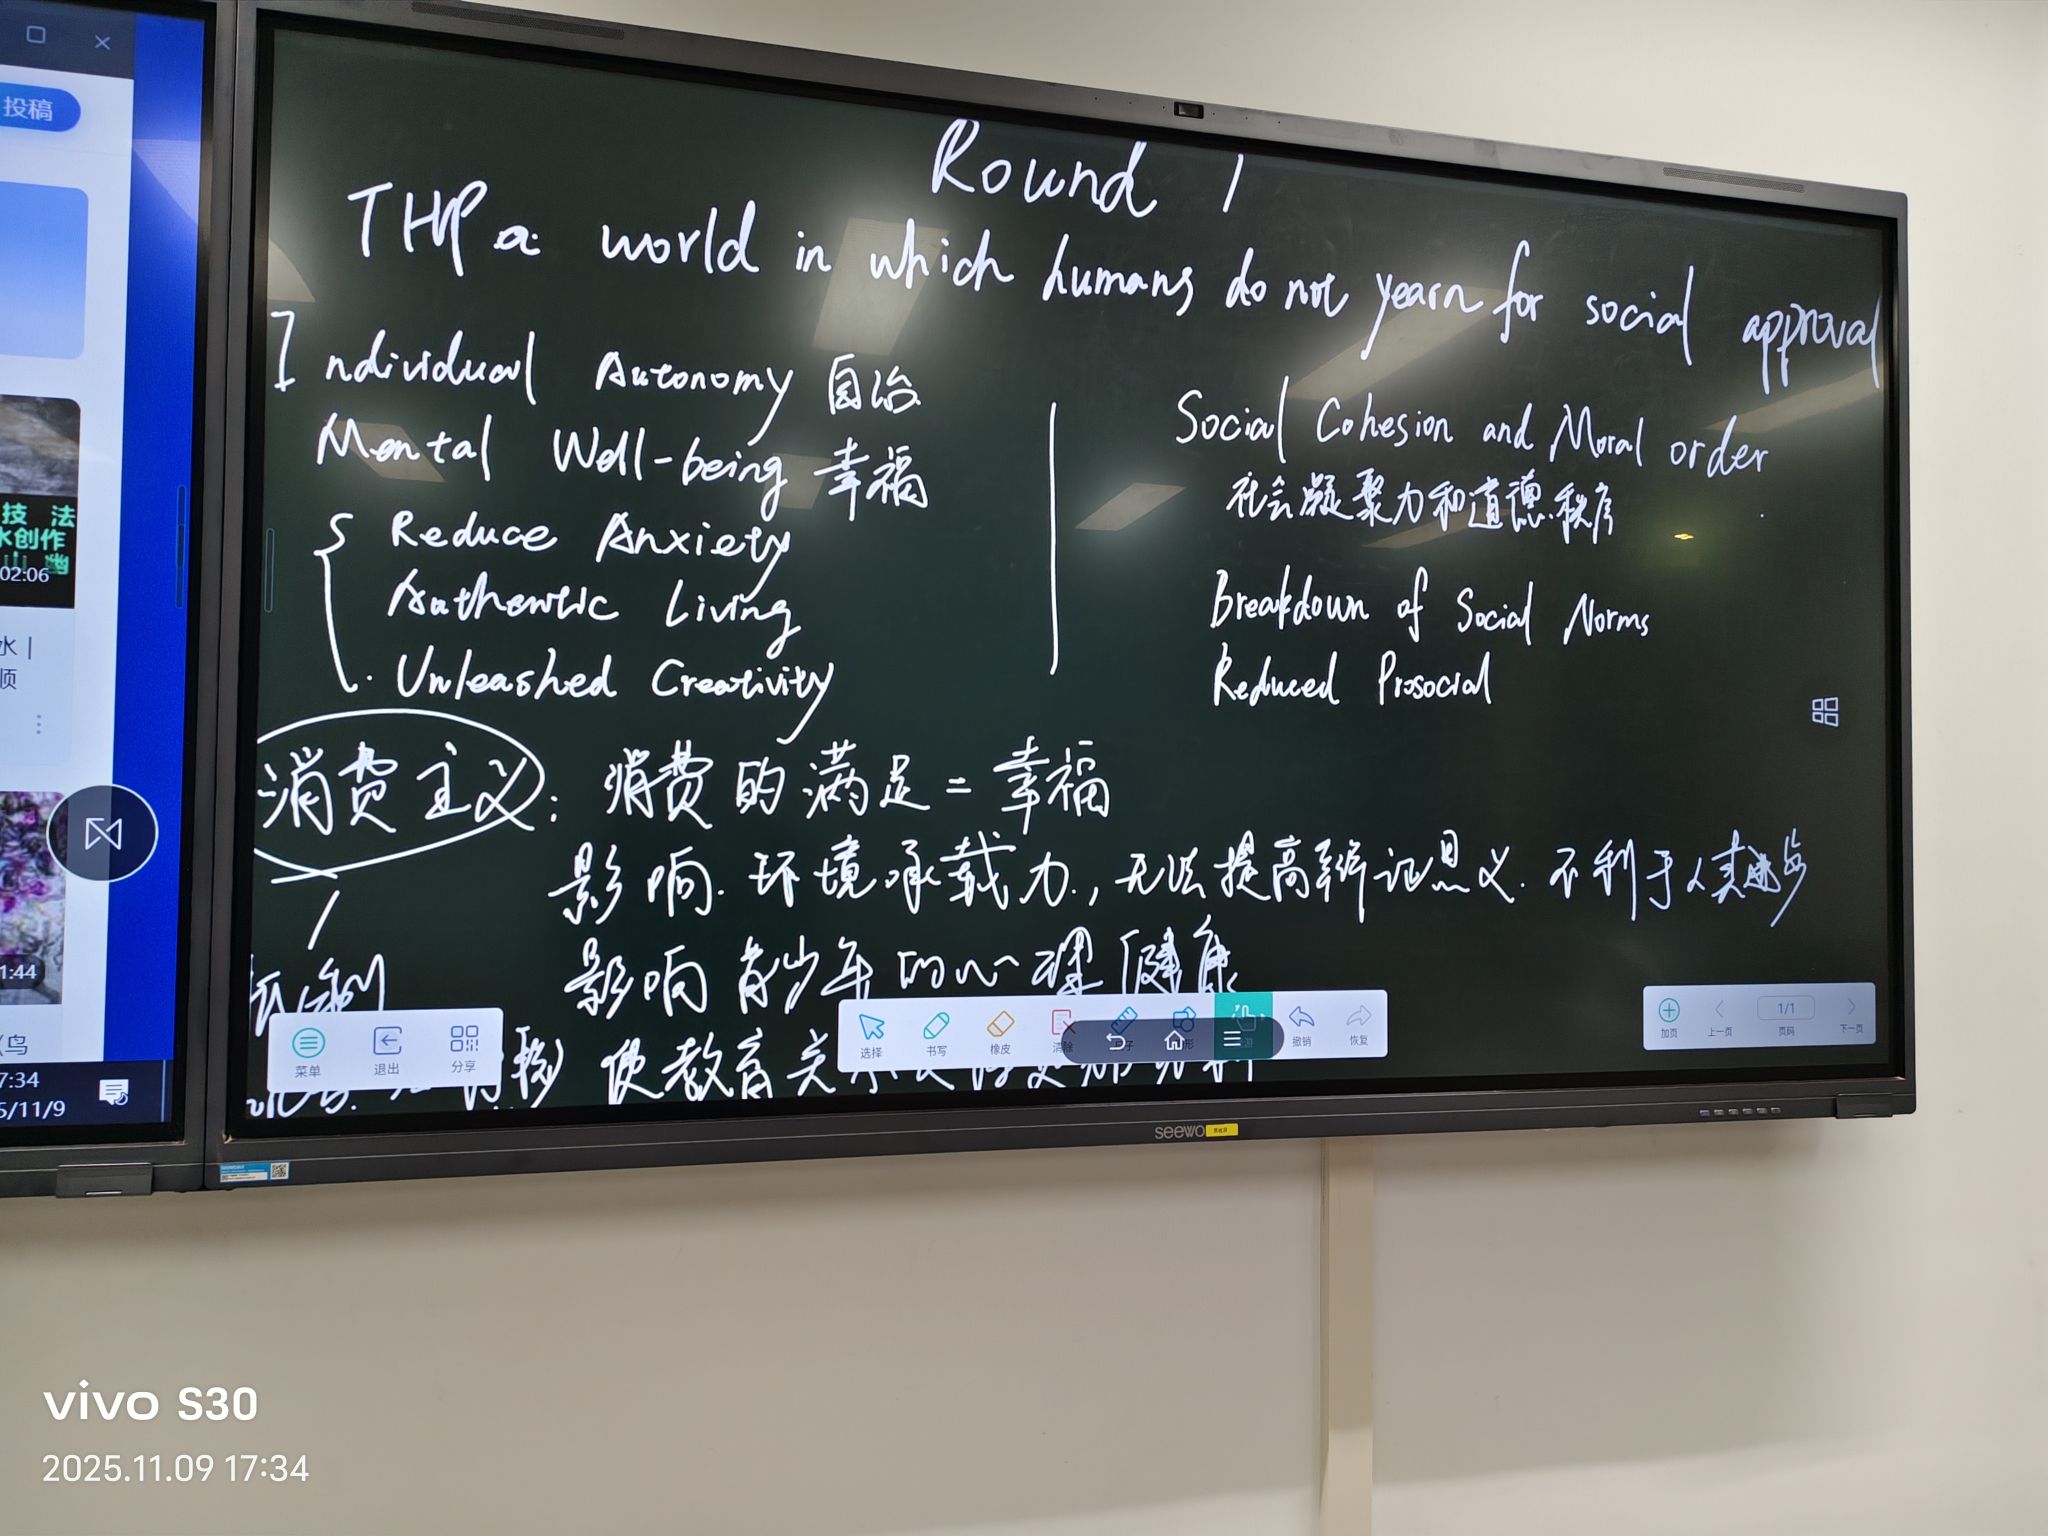 Round 1
THP a world in which humans do not yearn for social approval
Individual Autonomy 自治
Mental Well-being 幸福
Reduce Anxiety
Authentic Living
Unleashed Creativity
Social Cohesion and Moral order
社会凝聚力和道德秩序
Breakdown of Social Norms
Reduced Prosocial
消费主义：消费的满足=幸福
影响.环境承载力，无法提高辩证思义.不利于人类进步
影响青少年的心理健康
使教育关
菜单
退出
分享
选择
书写
橡皮
清除
撤销
恢复
加页
上一页
1/1
页码
下一页
seewo
投稿
技 法
水创作
02:06
水 |
顷
1:44
鸟
7:34
5/11/9
vivo S30
2025.11.09 17:34